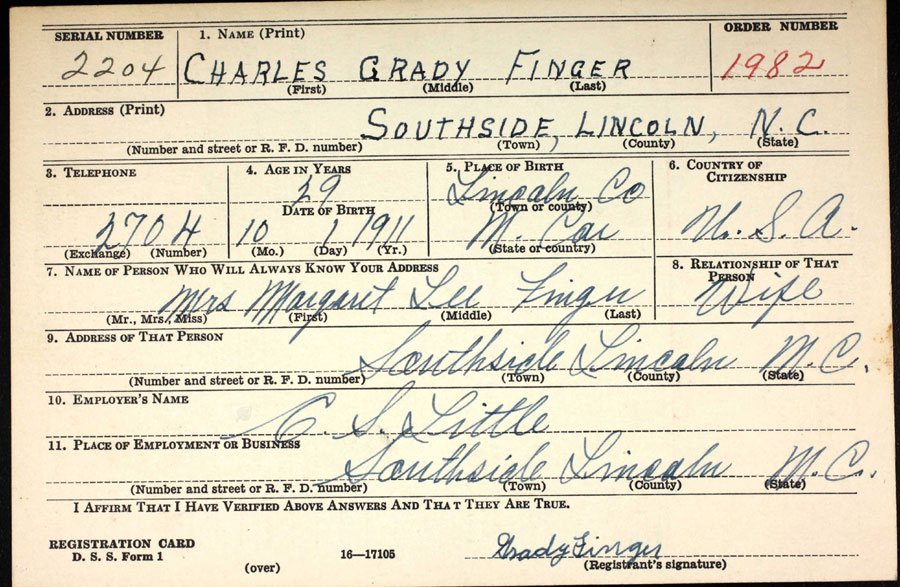 SERIAL NUMBER 1. NAME (Print) ORDER NUMBER
2204 CHARLES GRADY FINGER 1982
(First) (Middle) (Last)
2. ADDRESS (Print)
SOUTHSIDE, LINCOLN, N. C.
(Number and street or R. F. D. number) (Town) (County) (State)
3. TELEPHONE 4. AGE IN YEARS 5. PLACE OF BIRTH 6. COUNTRY OF
CITIZENSHIP
29 Lincoln Co
DATE OF BIRTH (Town or county)
2704 10 1 1911 N. Car U. S. A.
(Exchange) (Number) (Mo.) (Day) (Yr.) (State or country)
7. NAME OF PERSON WHO WILL ALWAYS KNOW YOUR ADDRESS 8. RELATIONSHIP OF THAT
PERSON
Mrs Margaret Lee Finger Wife
(Mr., Mrs., Miss) (First) (Middle) (Last)
9. ADDRESS OF THAT PERSON
Southside Lincoln N. C.
(Number and street or R. F. D. number) (Town) (County) (State)
10. EMPLOYER'S NAME
C. S. Little
11. PLACE OF EMPLOYMENT OR BUSINESS
Southside Lincoln N. C.
(Number and street or R. F. D. number) (Town) (County) (State)
I AFFIRM THAT I HAVE VERIFIED ABOVE ANSWERS AND THAT THEY ARE TRUE.
REGISTRATION CARD
D. S. S. Form 1 16—17105 Grady Finger
(over) (Registrant's signature)